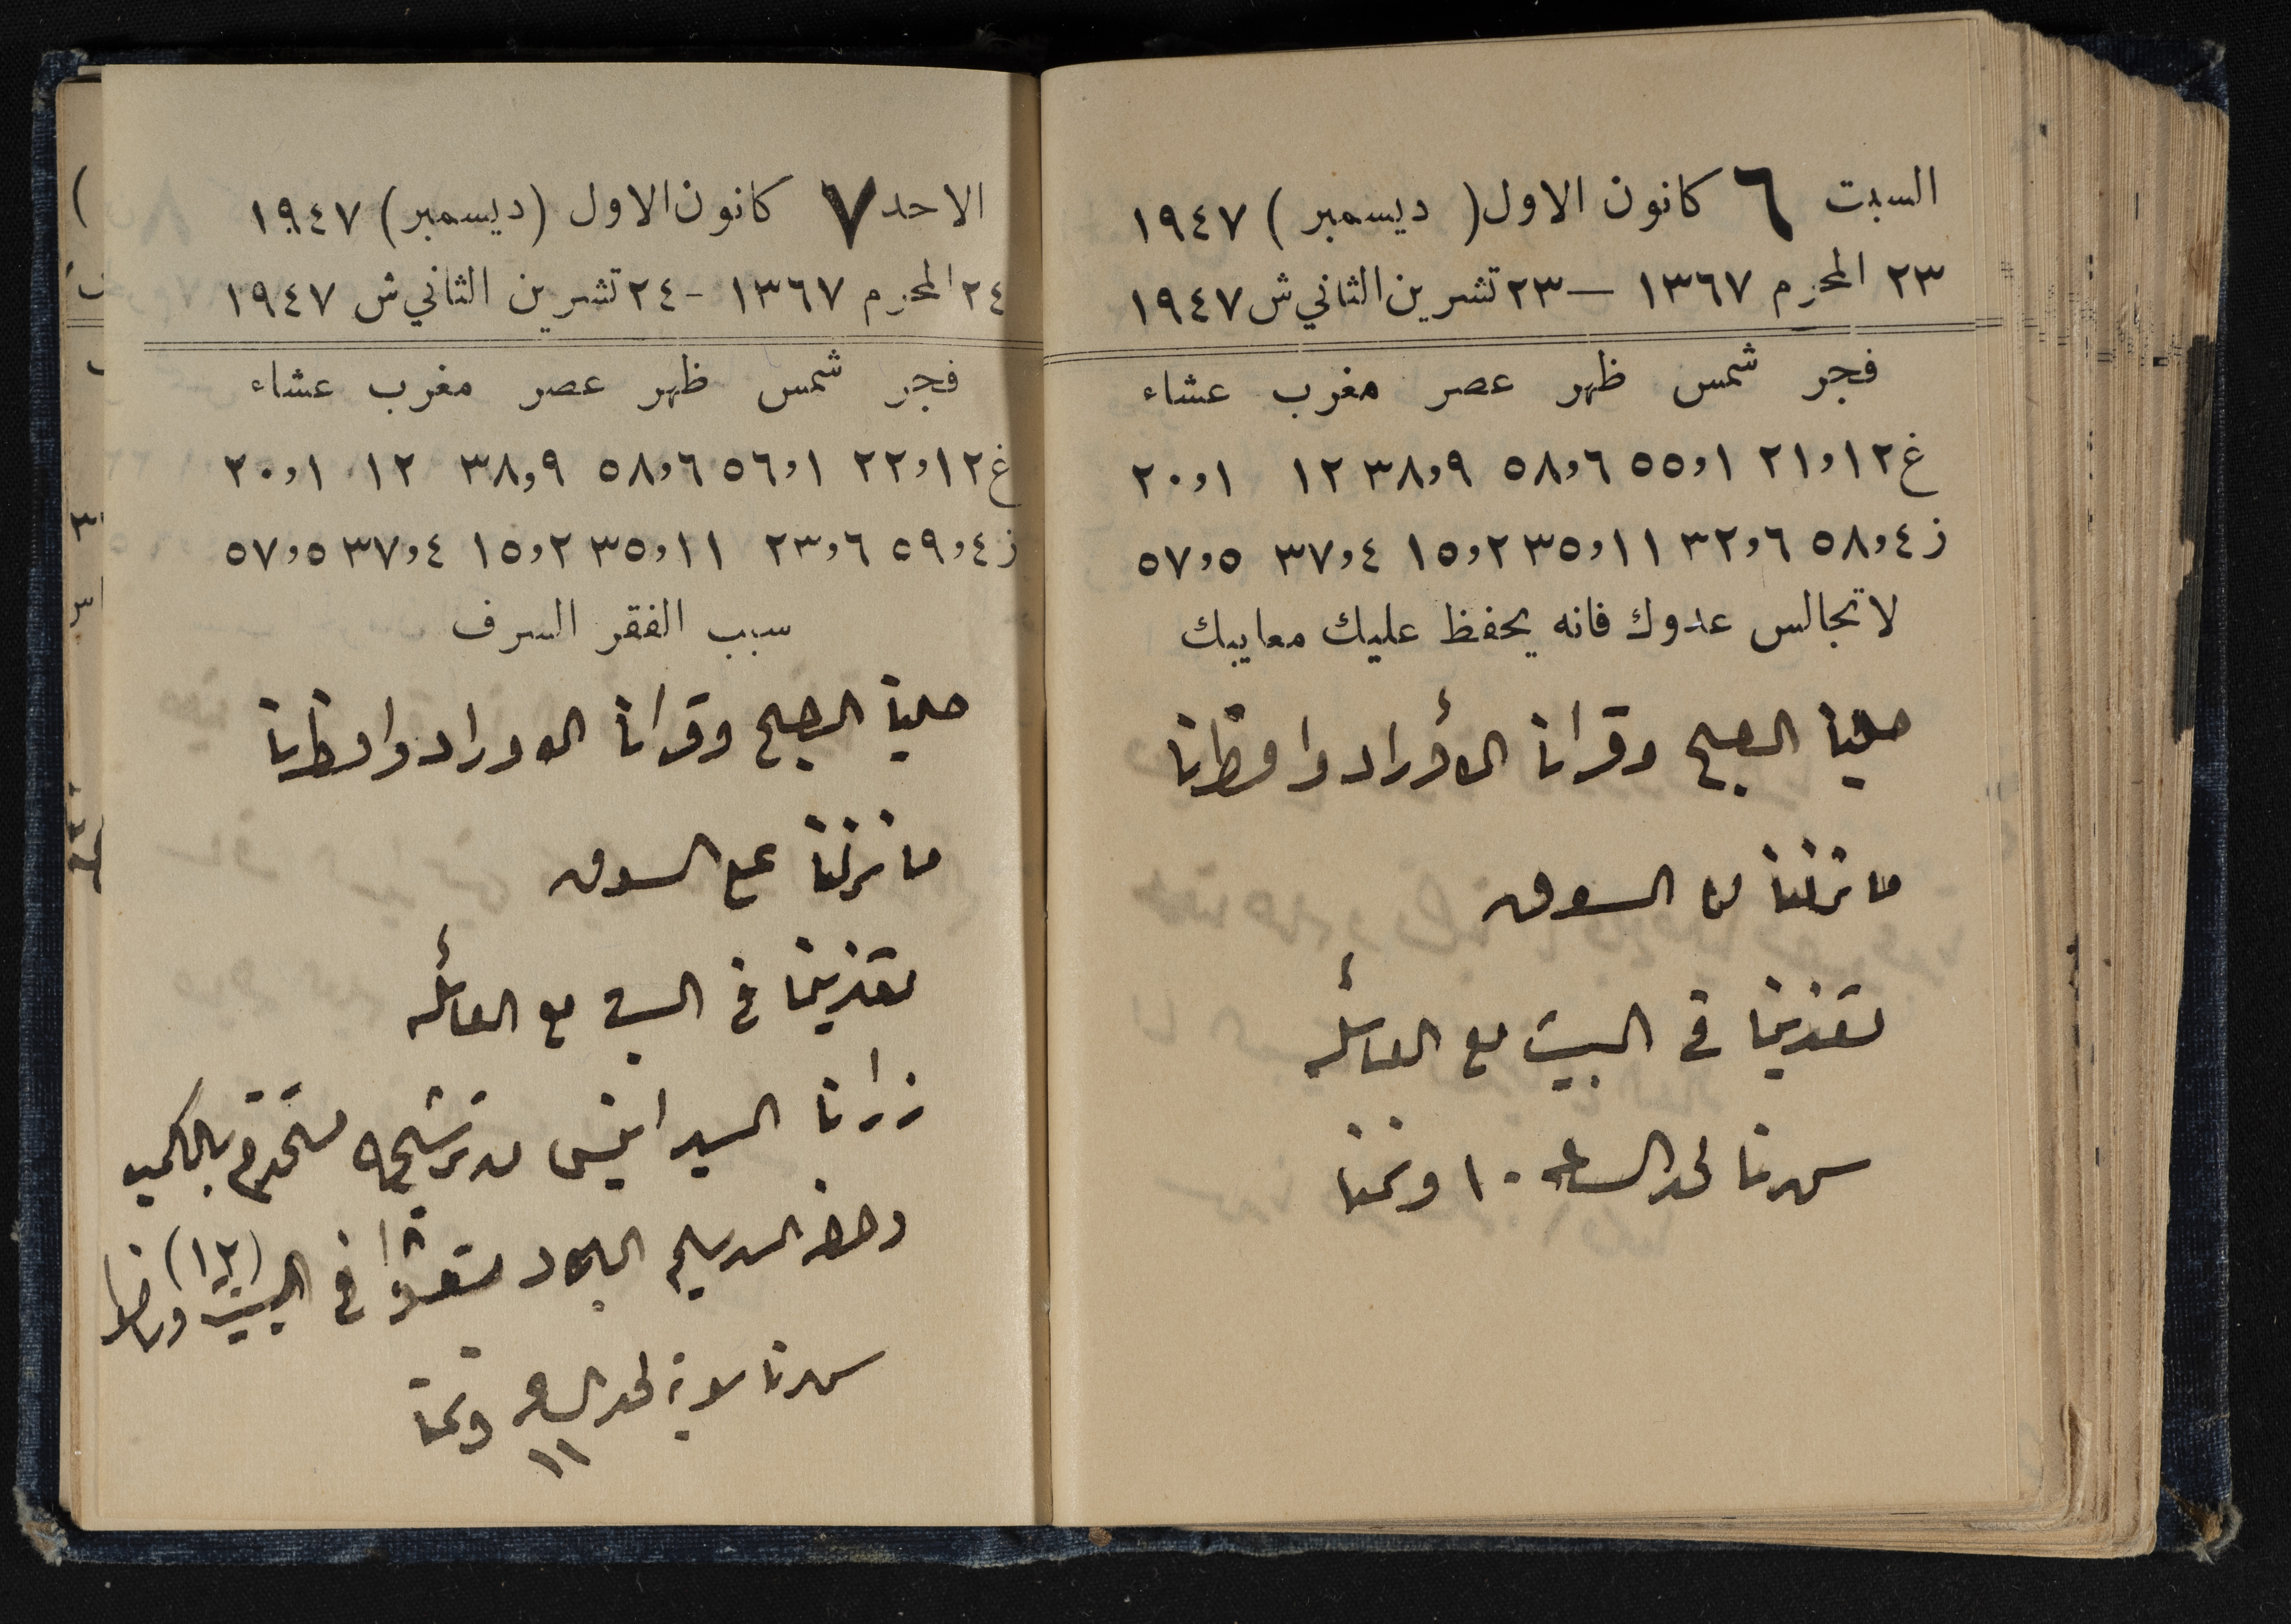 السبت ٦ كانون الاول ( ديسمبر ) ١٩٤٧
٢٣ المحرم ١٣٦٧ — ٢٣ تشرين الثاني ش ١٩٤٧
فجر شمس ظهر عصر مغرب عشاء
غ ١٢و٢١ ١و٥٥ ٦و٥٨ ٩و٣٨ ١٢ ١و٢٠
ز ٤و٥٨ ٦و٣٢ ١١و٣٥ ٢و١٥ ٤و٣٧ ٥و٥٧
لا تجالس عدوك فانه يحفظ عليك معايبك
صلينا الصبح وقرانا الأوراد وافطرنا
ما نزلنا السوق
تغذينا في البيت مع العائله
سهرنا لحد الساعه ١٠ ونمنا
الاحد ٧ كانون الاول (ديسمبر) ١٩٤٧
٢٤ المحرم ١٣٦٧ - ٢٤ تشرين الثاني ش ١٩٤٧
فجر شمس ظهر عصر مغرب عشاء
غ ١٢و٢٢ ١و٥٦ ٦و٥٨ ٩و٣٨ ١٢ ١و٢٠
ز ٤و٥٩ ٦و٢٣ ١١و٣٥ ٢و١٥ ٤و٣٧ ٥و٥٧
سبب الفقر السرف
صلينا الصبح وقرانا الاوراد وافطرنا
ما نزلنا السوق
تغذينا في البيت مع العائله
زارنا السيد انيس من ترشيحه
في البيت (١٢)
سهرنا سوية لحد الساعه ١١ ونمنا